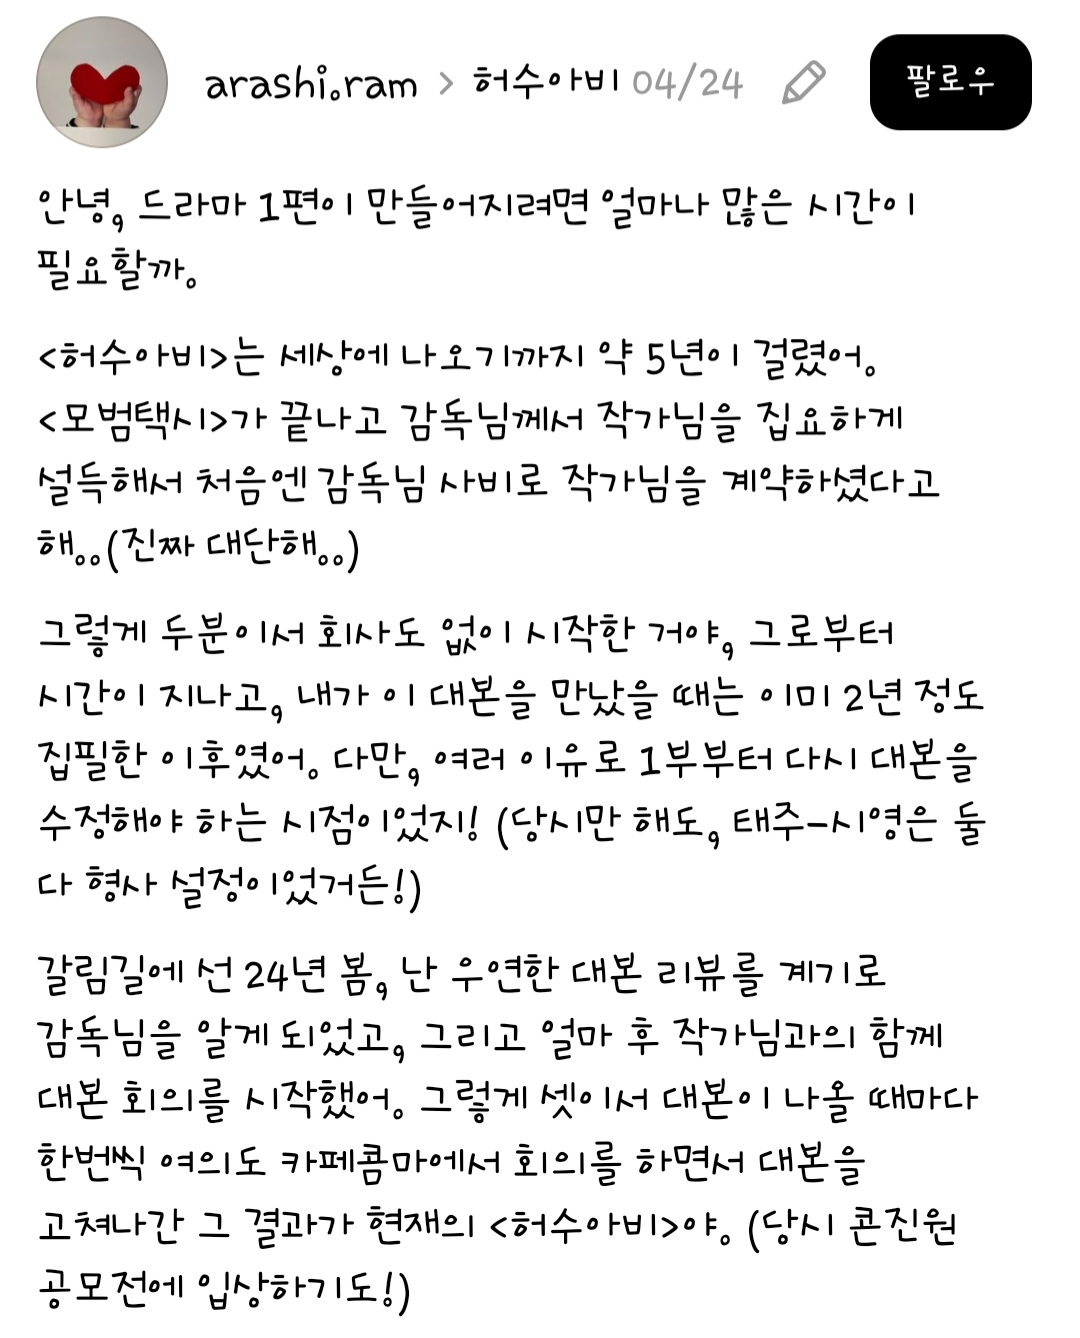 arashi.ram > 허수아비 04/24 팔로우
안녕, 드라마 1편이 만들어지려면 얼마나 많은 시간이
필요할까.
<허수아비>는 세상에 나오기까지 약 5년이 걸렸어.
<모범택시>가 끝나고 감독님께서 작가님을 집요하게
설득해서 처음엔 감독님 사비로 작가님을 계약하셨다고
해..(진짜 대단해..)
그렇게 두분이서 회사도 없이 시작한 거야, 그로부터
시간이 지나고, 내가 이 대본을 만났을 때는 이미 2년 정도
집필한 이후였어. 다만, 여러 이유로 1부부터 다시 대본을
수정해야 하는 시점이었지! (당시만 해도, 태주-시영은 둘
다 형사 설정이었거든!)
갈림길에 선 24년 봄, 난 우연한 대본 리뷰를 계기로
감독님을 알게 되었고, 그리고 얼마 후 작가님과의 함께
대본 회의를 시작했어. 그렇게 셋이서 대본이 나올 때마다
한번씩 여의도 카페콤마에서 회의를 하면서 대본을
고쳐나간 그 결과가 현재의 <허수아비>야. (당시 콘진원
공모전에 입상하기도!)